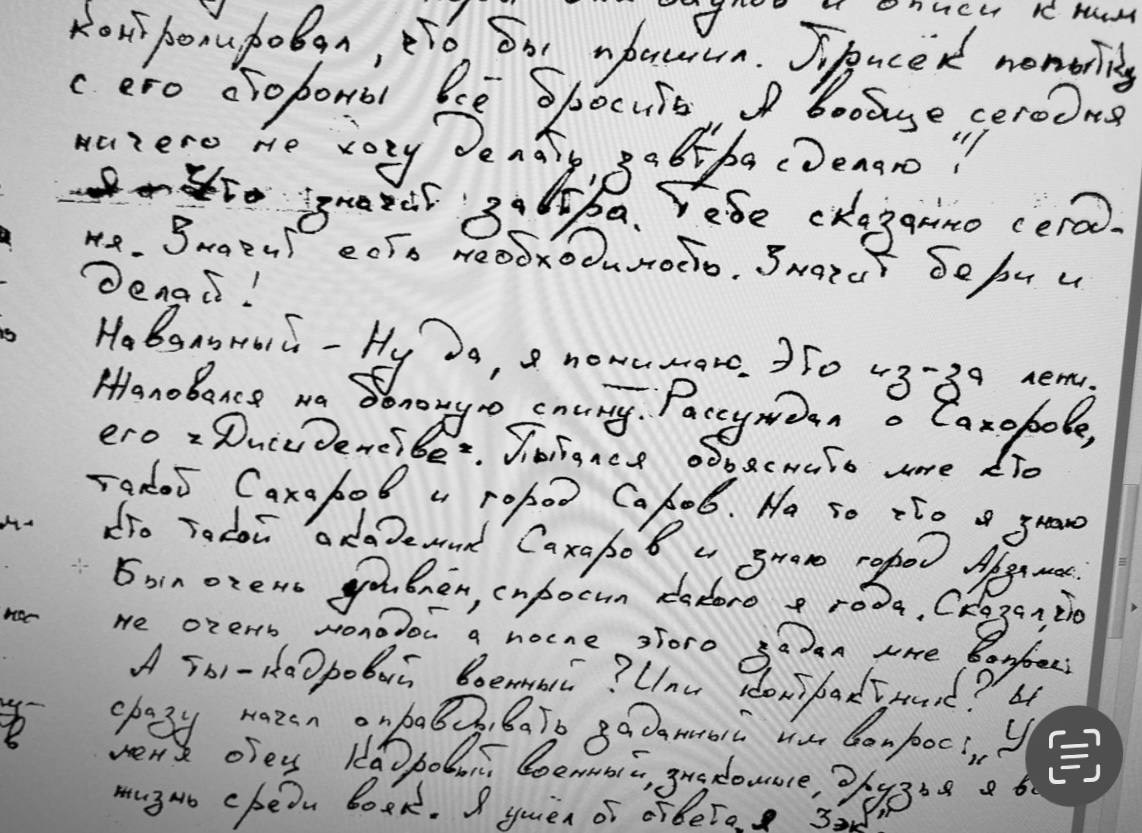 и описи к ним
контролировал, что бы пришил. Присёк попытку
с его стороны всё бросить „Я вообще сегодня
ничего не хочу делать, завтра сделаю"!
Что значит завтра. Тебе сказанно сегод-
ня. Значит есть необходимость. Значит бери и
делай!
Навальный – Ну да, я понимаю. Это из-за лени.
Жаловался на больную спину. Рассуждал о Сахорове,
его "Дисиденстве". Пытался объяснить мне кто
такой Сахаров и город Саров. На то что я знаю
кто такой академик Сахаров и знаю город Арзамас.
Был очень удивлён, спросил какого я года. Сказал, что
не очень молодой а после этого задал мне вопрос:
А ты-кадровый военный? Или контрактник? И
сразу начал оправдывать заданный им вопрос: „У
меня отец Кадровый военный, знакомые, друзья я
жизнь среди вояк. Я ушёл от ответа, я Зэк"